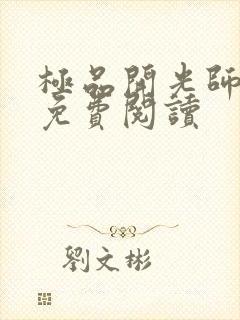 極品開光師
免費閱讀
劉文彬